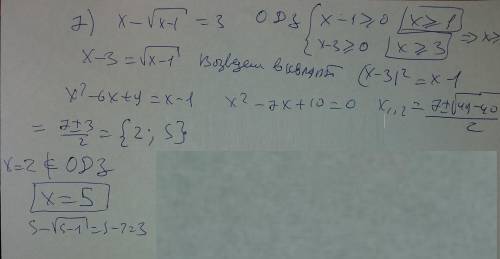 7) x-√x-1 = 3   ОДЗ { x-1≥0 x≥1
x-3≥0 x≥3 => x≥
x-3 = √x-1   Возведем в квадрат (x-3)² = x-1
x²-6x+9 = x-1   x²-7x+10=0   x₁,₂ = 7±√49-40 / 2
= 7±3 / 2 = {2; 5}
x=2 ∉ ОДЗ
x=5
5-√5-1 = 5-2=3